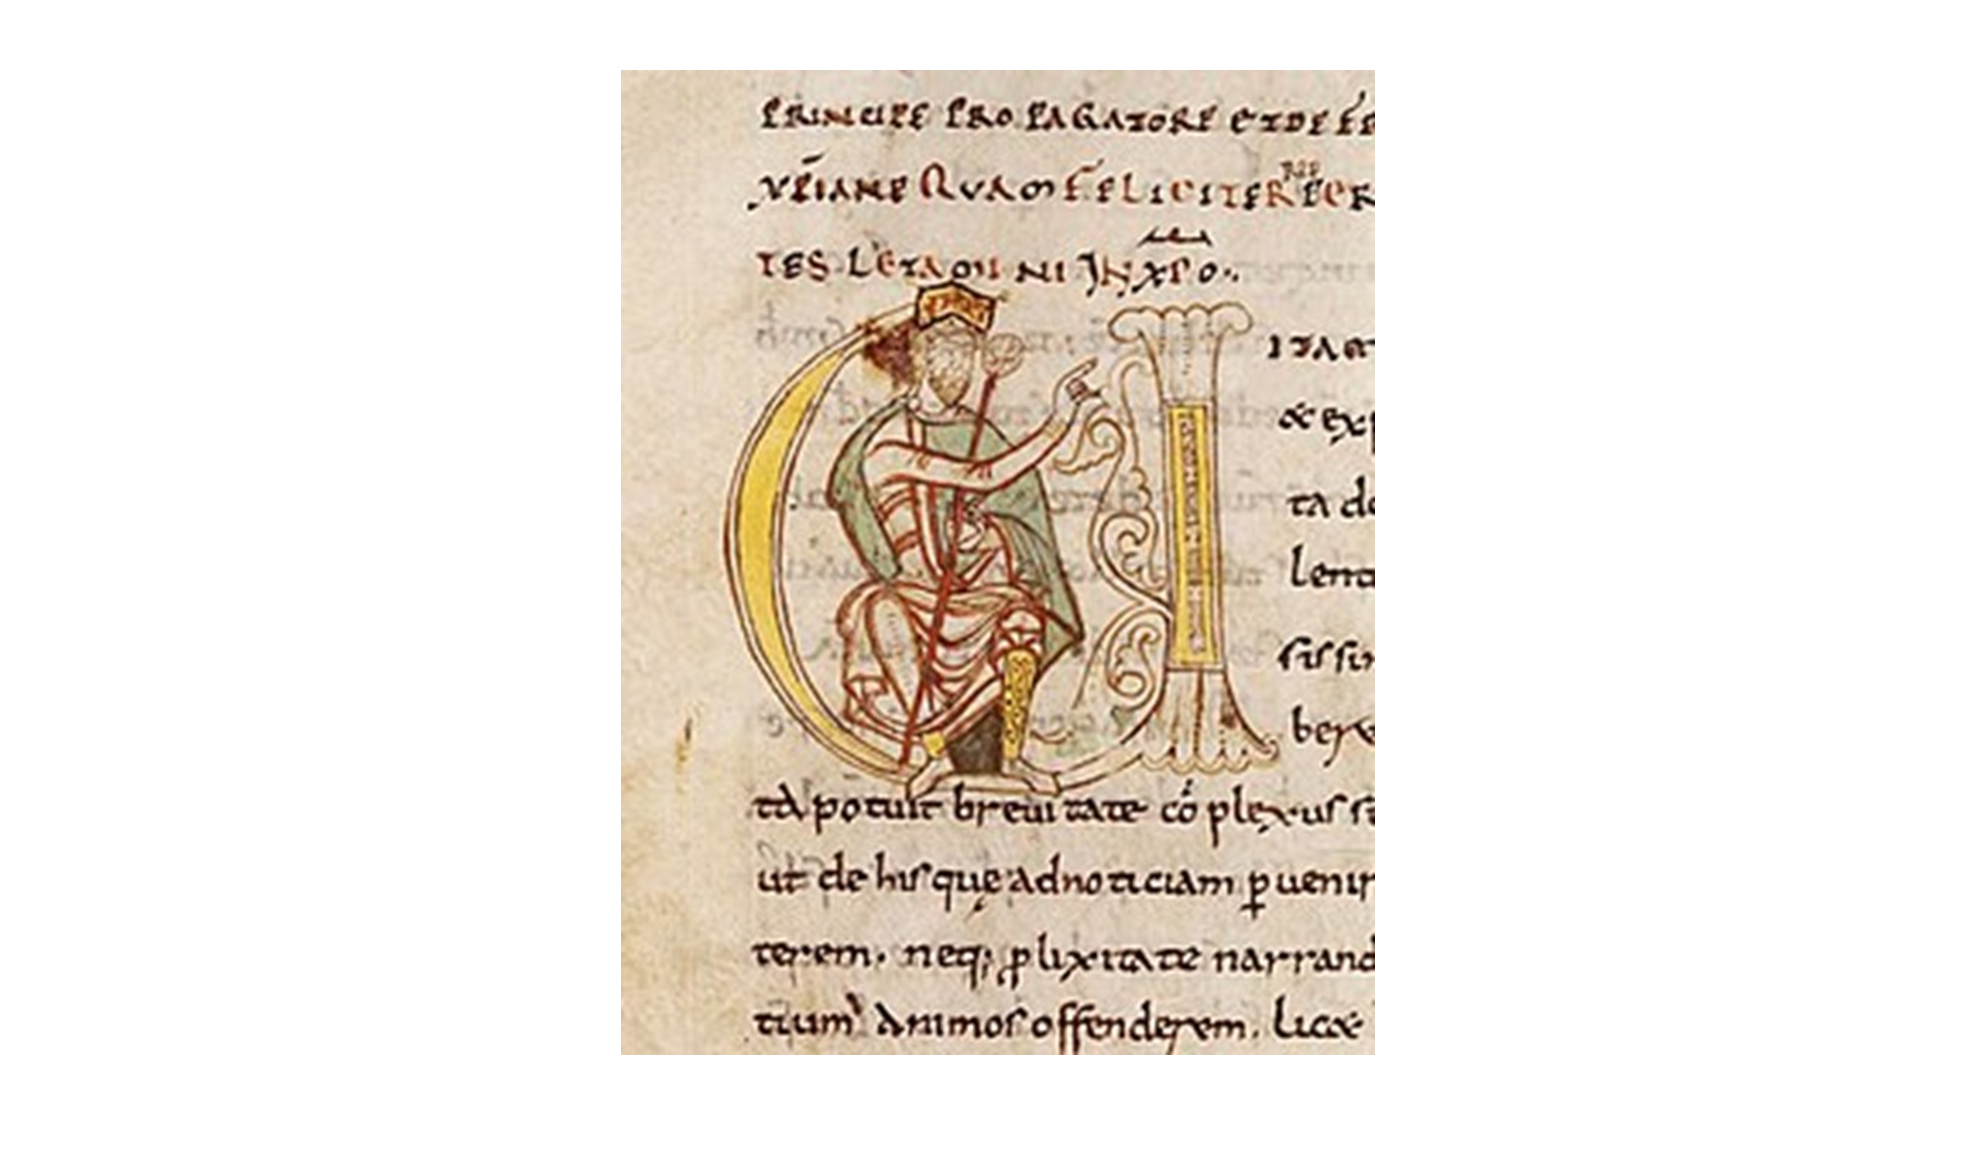 PRINCIPE PROPAGATORE ET DEFE
XPIANE QUAM FELICITER
TES LETAMINI IN XPO
UITAM
& exp
ta do
lent
sissi
ber
ta potuit breuitate cōplexus s
ut de hisquę adnoticiam puenir
terem. neq; plixitate narrand
tium animos offenderem. Lic&